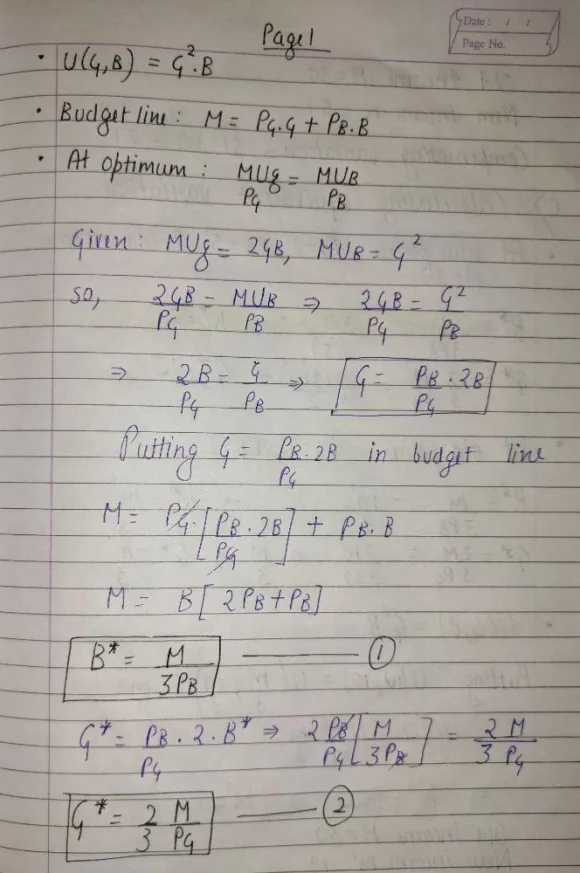 Page 1
Date : / /
Page No.
• U(G,B) = G².B
• Budget line : M = PG.G + PB.B
• At optimum : MUg/PG = MUB/PB
Given : MUg = 2GB, MUB = G²
so, 2GB/PG = MUB/PB ⇒ 2GB/PG = G²/PB
⇒ 2B/PG = G/PB ⇒ G = PB.2B/PG
Putting G = PB.2B/PG in budget line
M = PG.[PB.2B/PG] + PB.B
M = B[2PB+PB]
B* = M/3PB ——— ①
G* = PB.2.B*/PG ⇒ 2PB/PG[M/3PB] = 2/3 M/PG
G* = 2/3 M/PG ——— ②